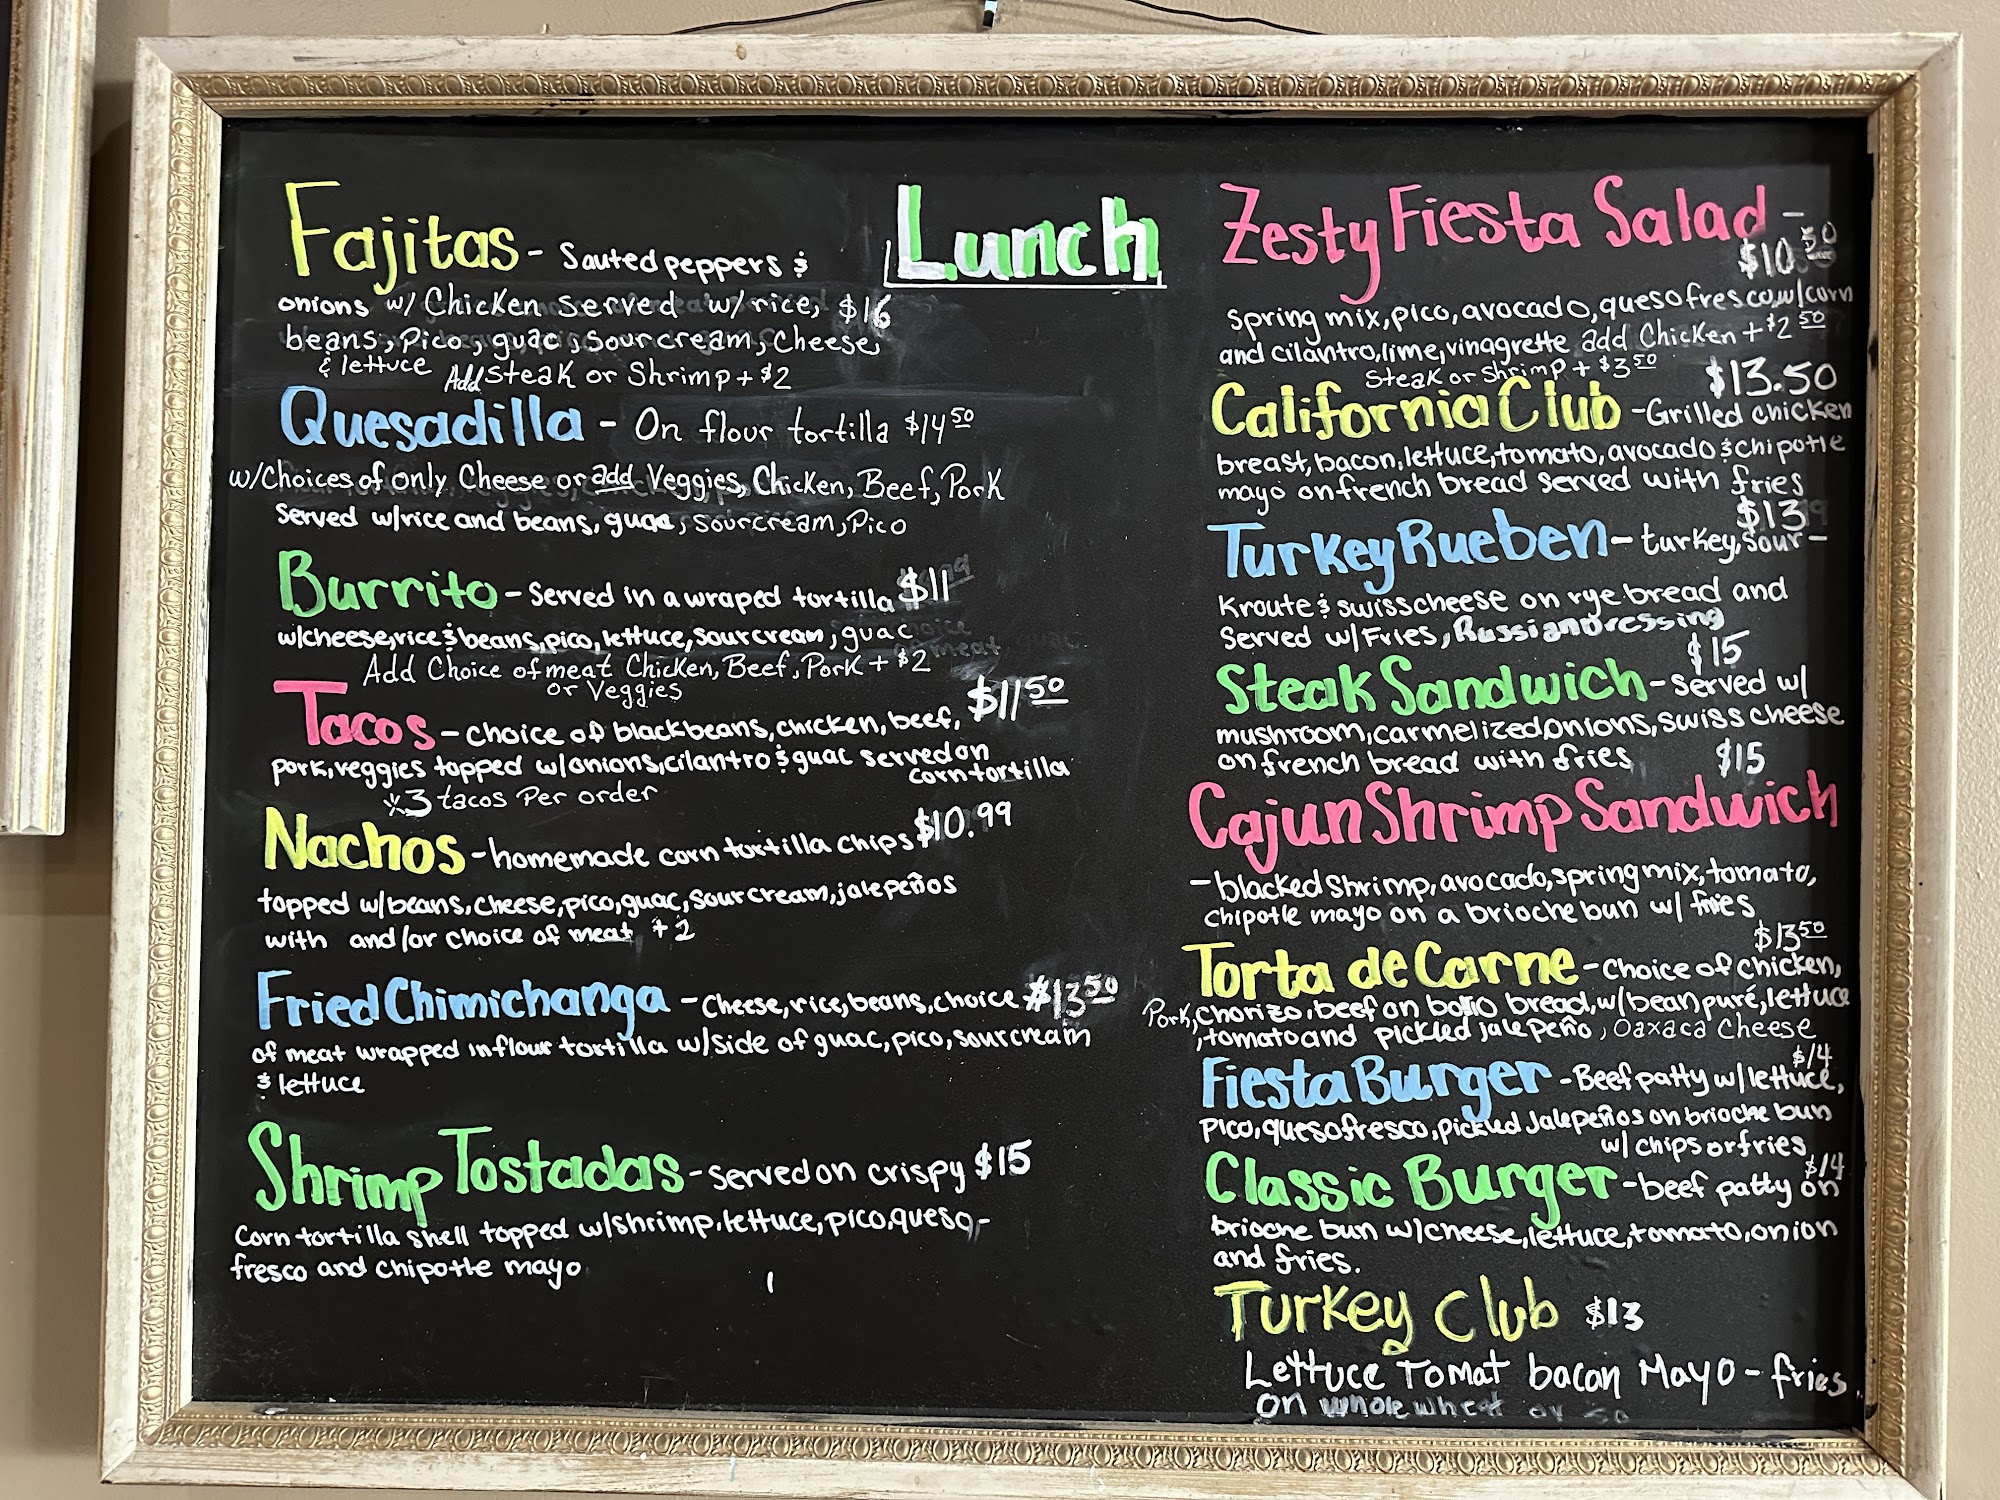 Lunch
Fajitas - Sauted peppers &
onions w/ Chicken served w/ rice, $16
beans, Pico, guac, sour cream, Cheese,
& lettuce Add Steak or Shrimp + $2
Quesadilla - On flour tortilla $14.50
w/Choices of only Cheese or add Veggies, Chicken, Beef, Pork
served w/rice and beans, guac, sour cream, Pico
Burrito - Served in a wraped tortilla $11
w/cheese, rice & beans, pico, lettuce, sour cream, guac
Add Choice of meat Chicken, Beef, Pork + $2
or Veggies
Tacos - choice of black beans, chicken, beef, $11.50
pork, veggies topped w/onions, cilantro & guac served on
corn tortilla
*3 tacos Per order
Nachos - homemade corn tortilla chips $10.99
topped w/beans, cheese, pico, guac, sour cream, jalepeños
with and/or choice of meat + 2
Fried Chimichanga - cheese, rice, beans, choice $13.50
of meat wrapped in flour tortilla w/side of guac, pico, sour cream
& lettuce
Shrimp Tostadas - served on crispy $15
corn tortilla shell topped w/shrimp, lettuce, pico, queso-
fresco and chipotle mayo
Zesty Fiesta Salad -
$10.50
spring mix, pico, avocado, queso fresco, w/corn
and cilantro, lime, vinagrette add Chicken + $2.50
Steak or shrimp + $3.50
$13.50
California Club - Grilled chicken
breast, bacon, lettuce, tomato, avocado & chipotle
mayo on french bread served with fries
$13
Turkey Rueben - turkey, sour -
kroute & swiss cheese on rye bread and
Served w/Fries, Russian Dressing
$15
Steak Sandwich - served w/
mushroom, carmelized onions, swiss cheese
on french bread with fries $15
Cajun Shrimp Sandwich
- blacked shrimp, avocado, spring mix, tomato,
chipotle mayo on a brioche bun w/ fries
$13.50
Torta de Carne - choice of chicken,
Pork, chorizo, beef on bolio bread, w/bean puré, lettuce
, tomato and pickled jalepeño, Oaxaca cheese
$14
Fiesta Burger - Beef patty w/lettuce,
Pico, queso fresco, pickled Jalepeños on brioche bun
w/ chips or fries
$14
Classic Burger - beef patty on
brioche bun w/cheese, lettuce, tomato, onion
and fries.
Turkey Club $13
Lettuce Tomat bacon Mayo - fries
on whole wheat or so